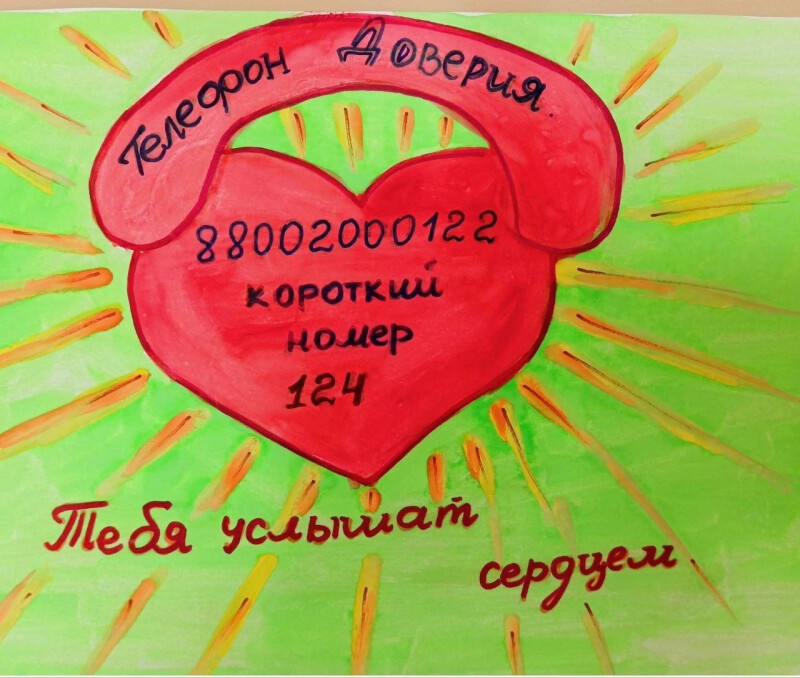 Телефон Доверия.
88002000122
короткий
номер
124
Тебя услышат
сердцем